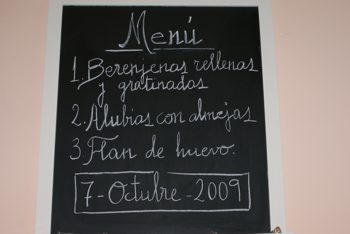 Menú
1. Berenjenas rellenas
y gratinadas
2. Alubias con almejas
3. Flan de huevo.
7-Octubre-2009